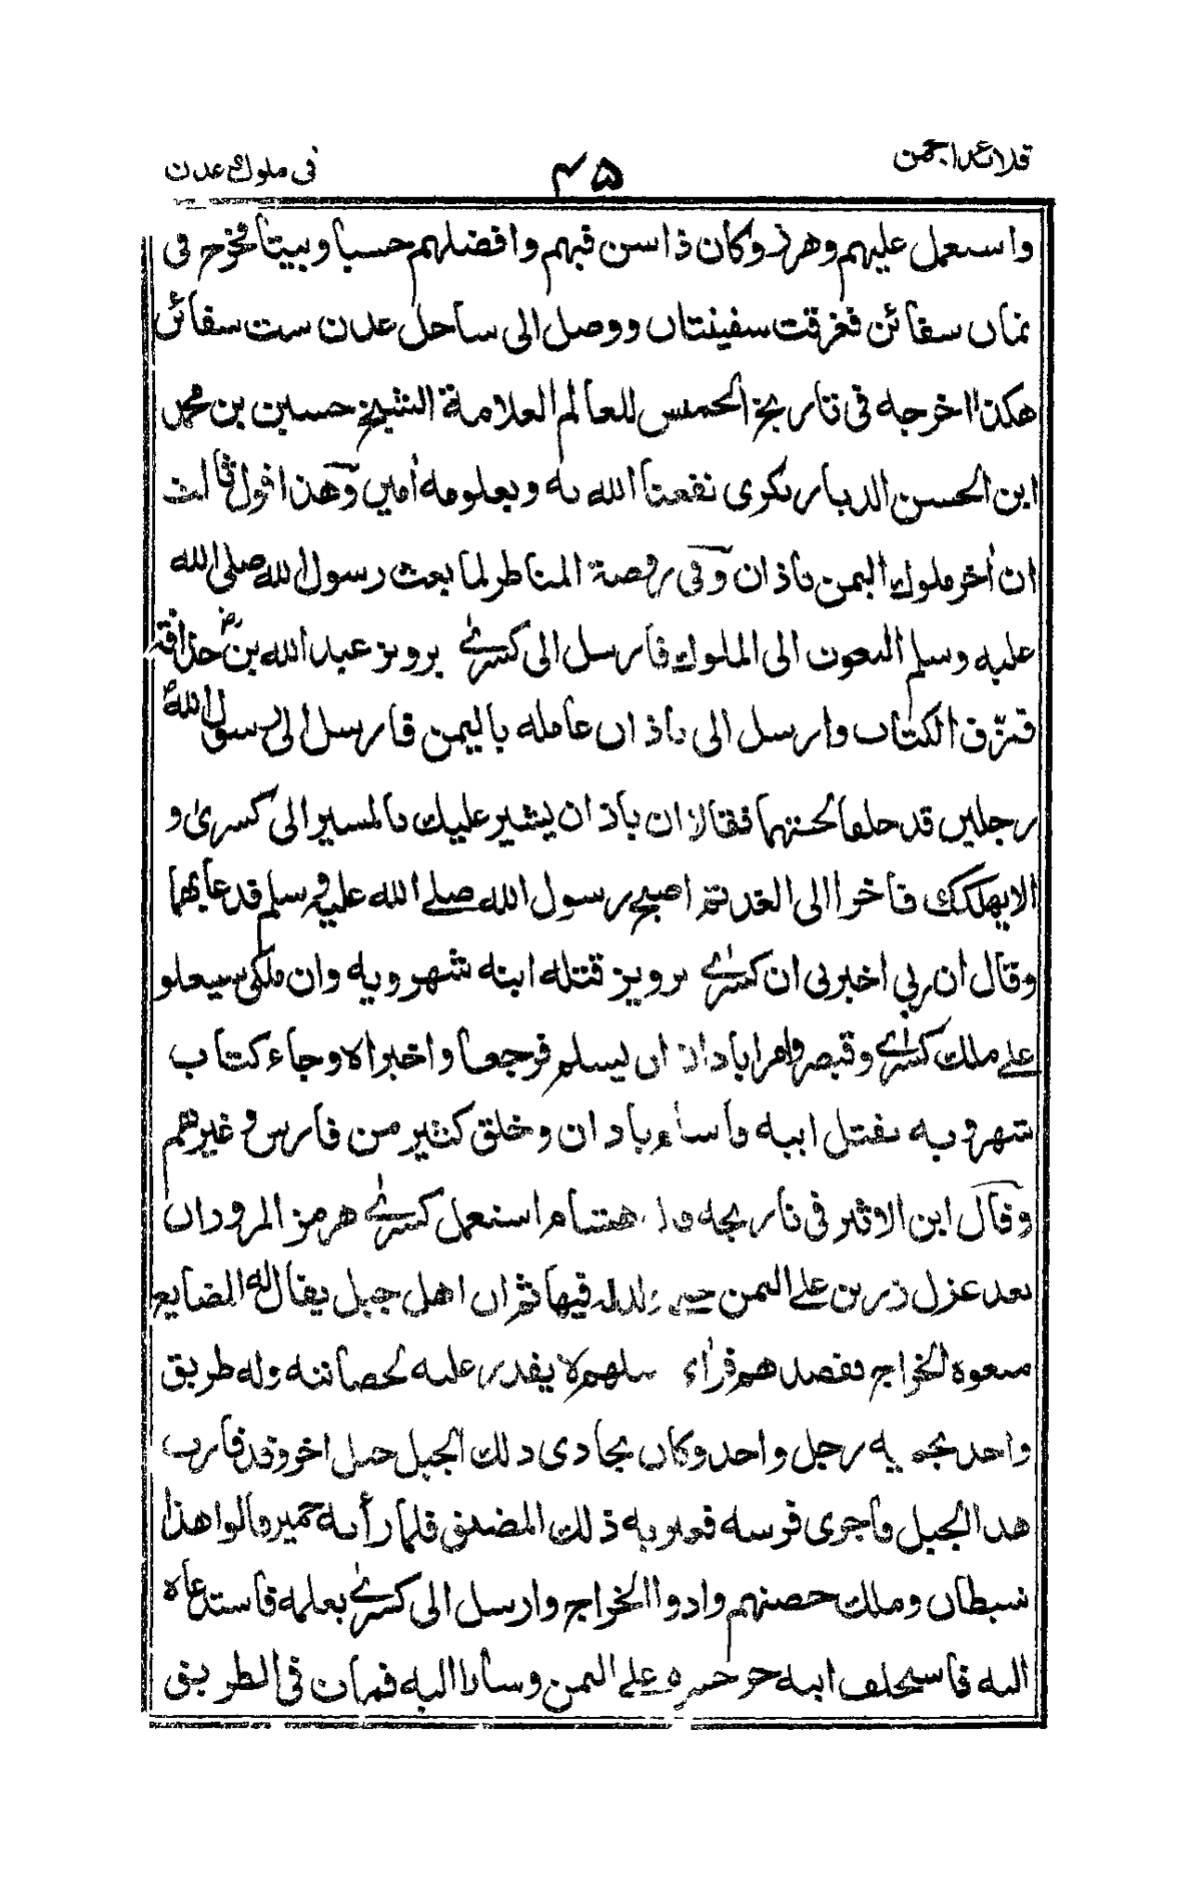 قلائد الجمن
۴۵
فی ملوك عدن
واستعمل عليهم وهرز وكان ذا سن فيهم وافضلهم حسبا وبيتا فخرج فی
ثمان سفائن فغرقت سفينتان ووصل الی ساحل عدن ست سفائن
هكذا اخرجه فی تاريخ الخميس للعالم العلامة الشيخ حسين بن محمد
ابن الحسن الديار بكری نفعنا الله به وبعلومه أمين وهذا قول ثالث
ان أخر ملوك اليمن باذان وفی روضة المناظر لما بعث رسول الله صلی الله
عليه وسلم البعوث الی الملوك فارسل الی كسرے برويز عبد الله بن حذافة
فمزّق الكتاب وارسل الی باذان عامله باليمن فارسل الی رسول الله
رجلين قد حلقا لحيتهما فقالا ان باذان يشير عليك بالمسير الی كسری و
الا يهلكك فاخر الی الغد ثم اصبح رسول الله صلے الله عليه وسلم فدعا بهما
وقال ان ربی اخبرنی ان كسرے برويز قتله ابنه شهرويه وان ملكی سيعلو
علے ملك كسرے وقيصر وامرا باذان ان يسلم فرجعا واخبراه وجاء كتاب
شهرويه بقتل ابيه فاسلم باذان وخلق كثير من فارس وغيرهم
وقال ابن الاثير فی تاريخه قال هشام استعمل كسرے هرمز المروزان
بعد عزل زرين علے اليمن حتی ولد له فيها ثم ان اهل جبل يقال له المضايع
منعوه الخراج فقصدهم فراء سلهم لا يقدر عليه لحصانته وله طريق
واحد يحميه رجل واحد وكان يحاذی ذلك الجبل جبل اخر وقد قارب
هذا الجبل فاجری فرسه فعبر به ذلك المضيق فلما رأته حمير قالوا هذا
شيطان وملك حصنهم وادوا الخراج وارسل الی كسرے يعلمه فاستدعاه
اليه فاستخلف ابنه خرخسره علے اليمن وسار اليه فمات فی الطريق